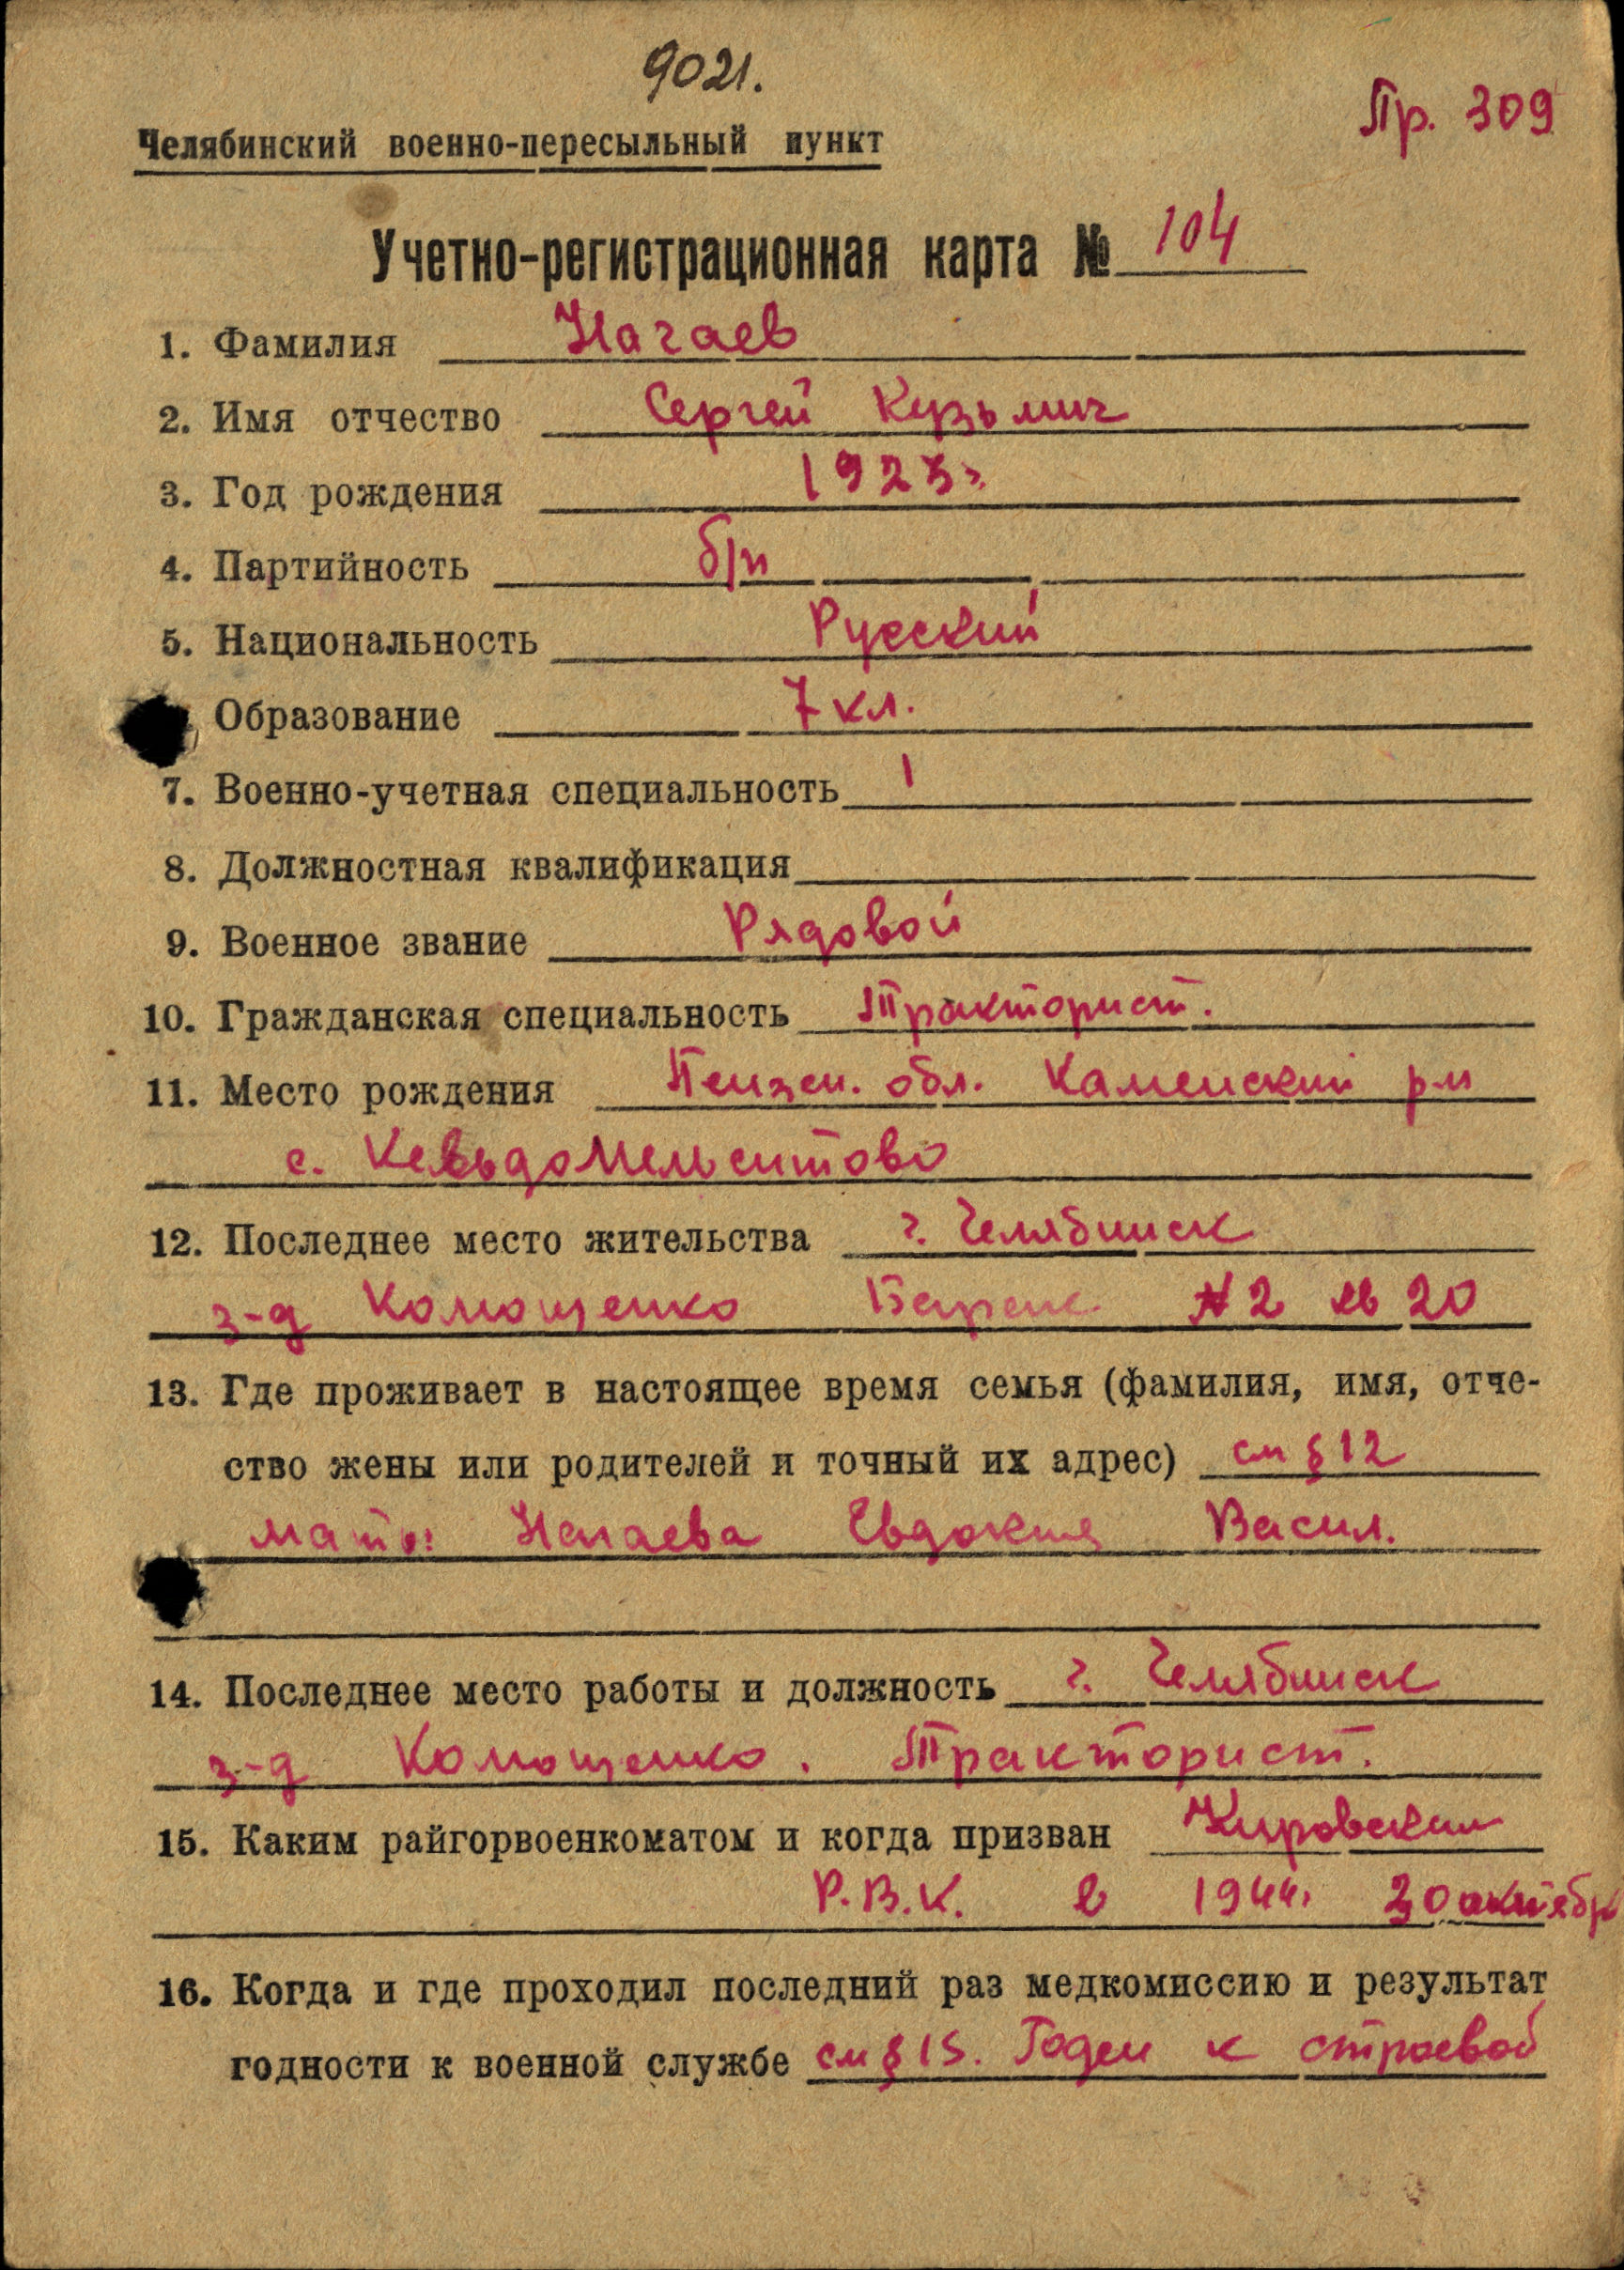 9021.
Пр. 309
Челябинский военно-пересыльный пункт
Учетно-регистрационная карта № 104
1. Фамилия Нагаев
2. Имя отчество Сергей Кузьмич
3. Год рождения 1923г.
4. Партийность б/п
5. Национальность Русский
Образование 7 кл.
7. Военно-учетная специальность 1
8. Должностная квалификация
9. Военное звание Рядовой
10. Гражданская специальность Тракторист.
11. Место рождения Пензен. обл. Каменский р-н
с. КевьдоМельситово
12. Последнее место жительства г. Челябинск
з-д Колющенко № 2 кв 20
13. Где проживает в настоящее время семья (фамилия, имя, отче-
ство жены или родителей и точный их адрес) см § 12
мать: Нагаева Евдокия Васил.
14. Последнее место работы и должность г. Челябинск
з-д Колющенко. Тракторист.
15. Каким райгорвоенкоматом и когда призван Кировским
Р.В.К. в 1944г 30 октябр
16. Когда и где проходил последний раз медкомиссию и результат
годности к военной службе см § 15. Годен к строевой